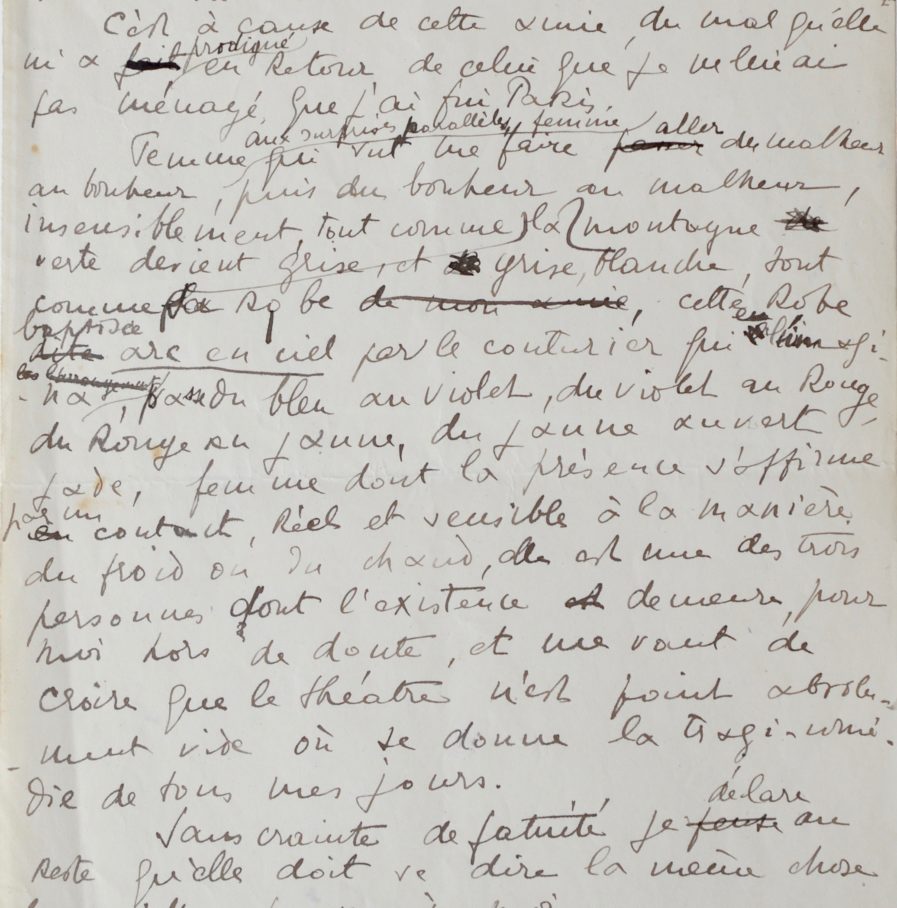 C'est à cause de cette amie, du mal qu'elle
prodigué
m'a fait en retour de celui que je ne lui ai
pas ménagé, que j'ai fui Paris.
aux surprises parallèles, femme aller
Femme qui sut me faire passer du malheur
au bonheur, puis du bonheur au malheur,
insensiblement, tout comme la montagne de
verte devient grise, et de grise, blanche, tout
comme la robe de mon amie, cette robe
baptisée en
dite arc en ciel par le couturier qui l'imagi-
-na, passa du bleu au violet, du violet au rouge,
du rouge au jaune, du jaune au vert
jade, femme dont la présence s'affirme
par un
en contact, réel et sensible à la manière
du froid ou du chaud, elle est une des trois
personnes dont l'existence est demeure, pour
moi hors de doute, et me vaut de
croire que le théâtre n'est point absolu-
-ment vide où se donne la tragi-comé-
die de tous mes jours.
déclare
Sans crainte de fatuité je pense au
reste qu'elle doit se dire la même chose